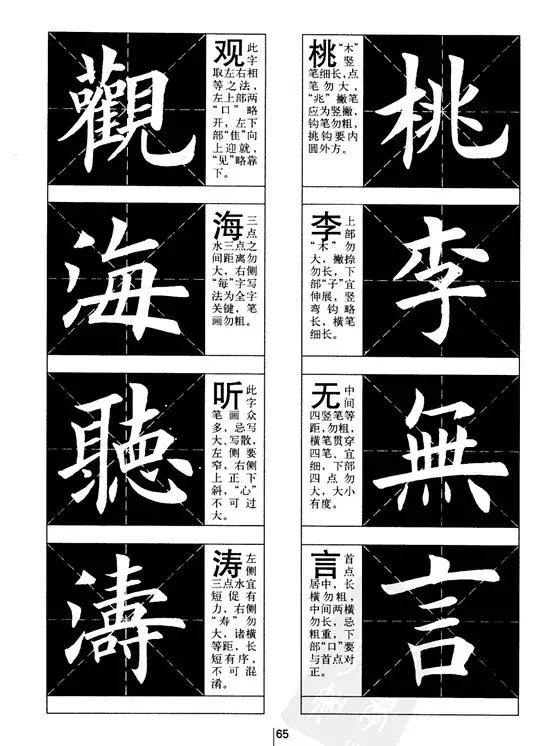 觀
观 此字
取左右相
等之法，
左上部两
“口”略
开，左下
部“隹”向
上迎就，
“见”略靠
下。
海
海 三点
水三点之
间距离勿
大，右侧
“每”字写
法为全字
关键，笔
画勿粗。
聽
听 此字
笔画众
多，忌写
大、写散，
左侧要
窄，右侧
上正下
斜，“心”
不可过
大。
濤
涛 左侧
三点水宜
短促有
力，右侧
“寿”勿
大，诸横
等距，长
短有序，
不可混
淆。
桃
桃 “木”竖
笔细长，点
笔勿大，
“兆”撇笔
应为竖撇，
钩笔勿粗，
挑钩要内
圆外方。
李
李 上部
“木”勿
大，撇捺
勿长，下
部“子”宜
伸展，竖
弯钩略
长，横笔
细长。
無
无 中间
四竖笔等
距，勿粗，
横笔贯穿
四笔、宜
细，下部
四点勿
大，大小
有度。
言
言 首点
居中，长
横勿粗，
中间两横
勿长，忌
粗重，下
部“口”要
与首点对
正。
65